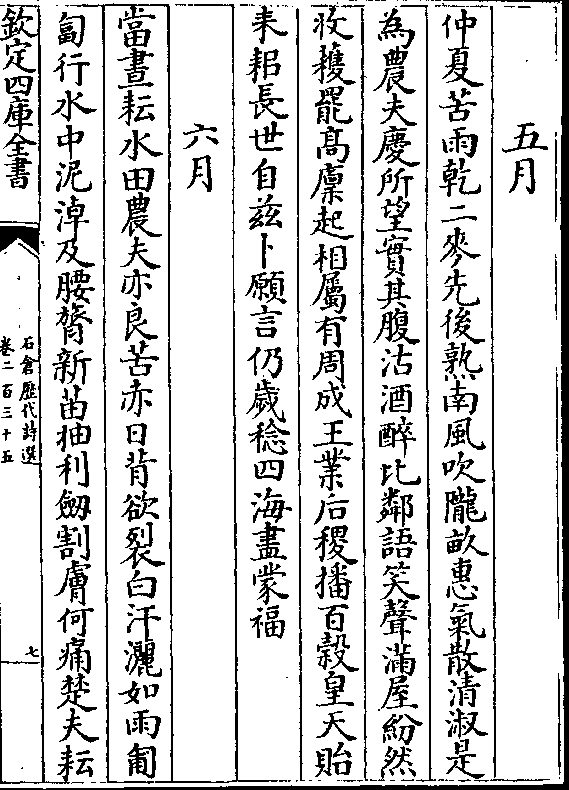 五月
仲夏苦雨乾二麥先後熟南風吹隴畝惠氣散清淑是
為農夫慶所望實其腹沽酒醉比鄰語笑聲滿屋紛然
收穫罷高廩起相屬有周成王業后稷播百穀皇天貽
来耜長世自兹卜願言仍歲稔四海盡蒙福
六月
當晝耘水田農夫亦良苦赤日背欲裂白汗灑如雨匍
匐行水中泥淖及腰膂新苗抽利劒割膚何痛楚夫耘
欽定四庫全書
石倉歷代詩選
卷二百三十五
七